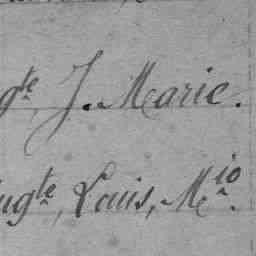 gte, J. Marie.
ugte, Louis, Mio.